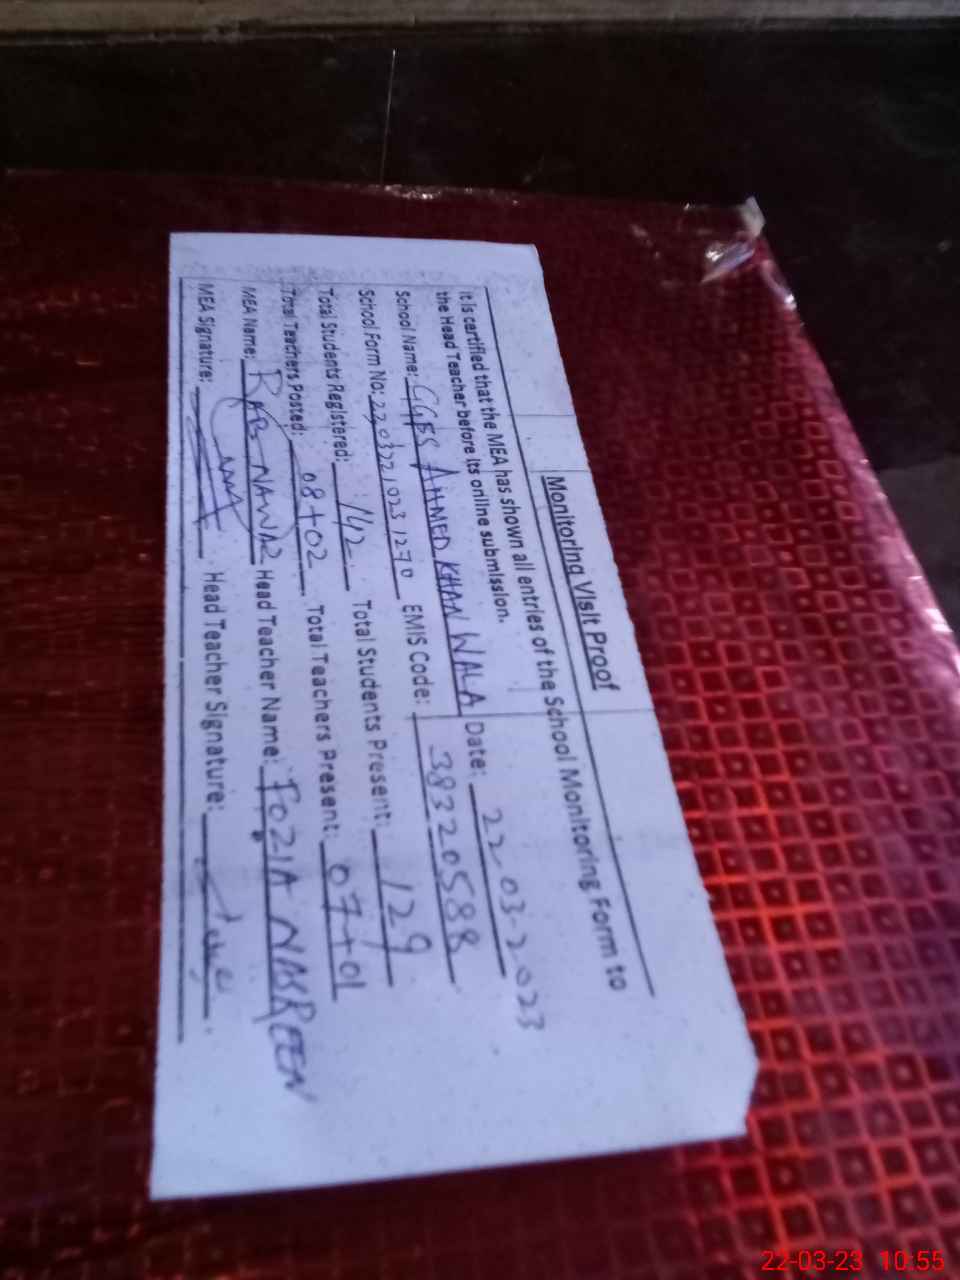 Monitoring Visit Proof
It is certified that the MEA has shown all entries of the School Monitoring Form to
the Head Teacher before its online submission.
School Name: GGES AHMED KHAN WALA Date: 22-03-2023
School Form No: 22032210231270 EMIS Code: 38320588
Total Students Registered: 142 Total Students Present: 129
Total Teachers Posted: 08+02 Total Teachers Present: 07+01
MEA Name: RAB NAWAZ Head Teacher Name: FOZIA NASREEN
MEA Signature: Head Teacher Signature:
22-03-23 10:55